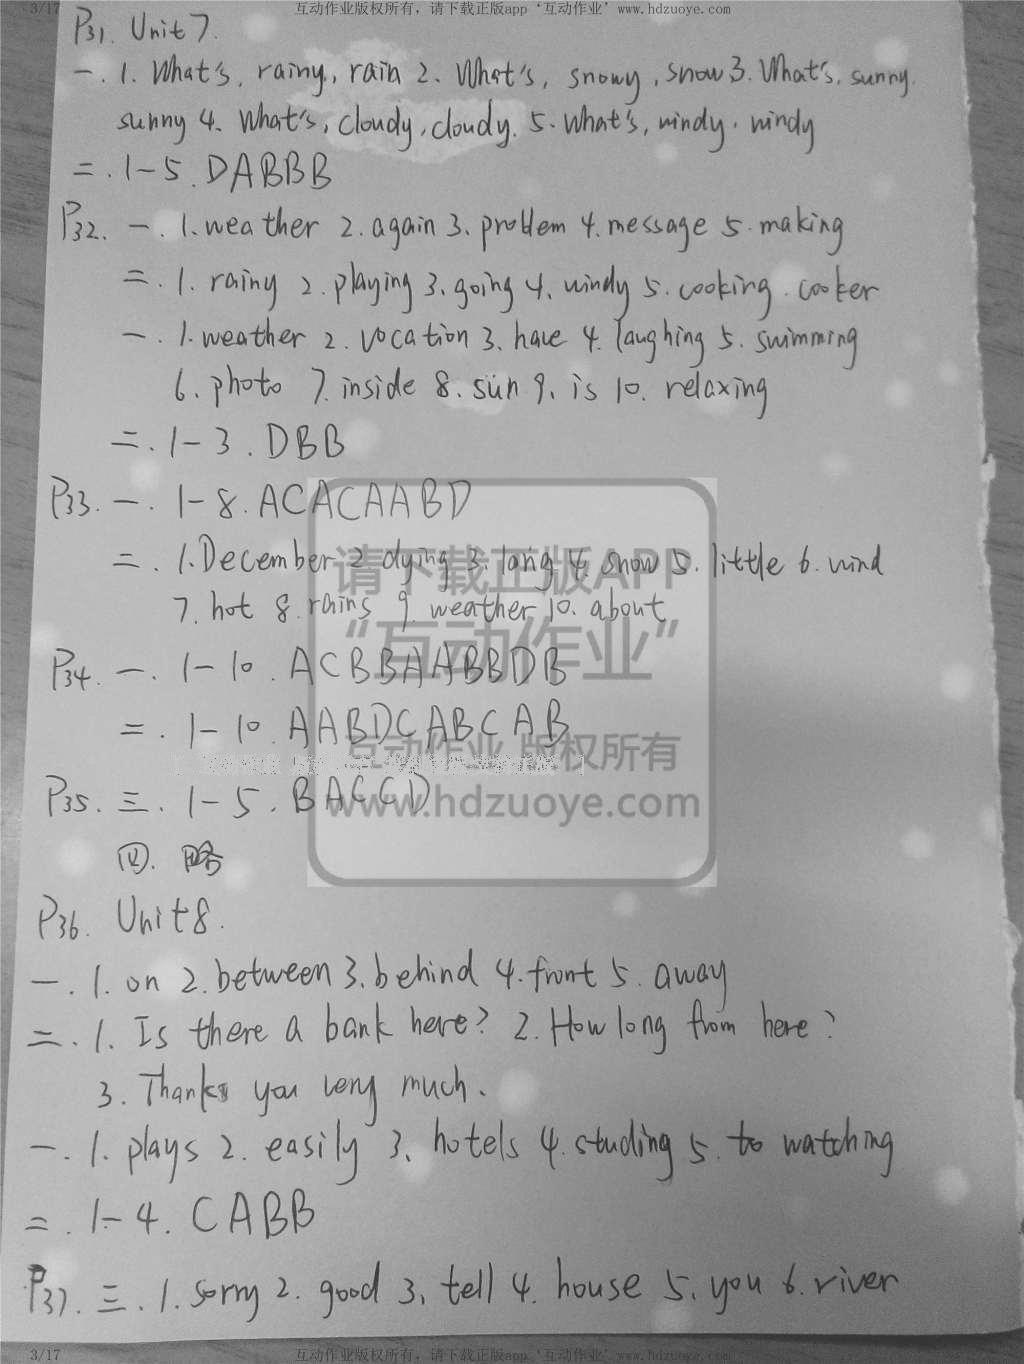 3/17 互动作业版权所有，请下载正版app‘互动作业’www.hdzuoye.com
P31. Unit 7.
一. 1. What's, rainy, rain 2. What's, snowy, snow 3. What's, sunny.
sunny 4. What's, cloudy, cloudy. 5. What's, windy. windy
二. 1-5. DABBB
P32. 一. 1. weather 2. again 3. problem 4. message 5. making
二. 1. rainy 2. playing 3. going 4. windy 5. cooking. cooker
一. 1. weather 2. vocation 3. have 4. laughing 5. swimming
6. photo 7. inside 8. sun 9. is 10. relaxing
二. 1-3. DBB
P33. 一. 1-8. ACACAABD
二. 1. December 2. dying 3. 4. snow 5. little 6. wind
7. hot 8. rains 9. weather 10. about
P34. 一. 1-10. ACBBAABBDB
二. 1-10. AABDCABCAB
P35. 三. 1-5. BACCD
四. 略
请下载正版APP
“互动作业”
互动作业 版权所有
www.hdzuoye.com
P36. Unit 8.
一. 1. on 2. between 3. behind 4. front 5. away
二. 1. Is there a bank here? 2. How long from here?
3. Thanks you very much.
一. 1. plays 2. easily 3. hotels 4. studing 5. to watching
二. 1-4. CABB
P37. 三. 1. sorry 2. good 3. tell 4. house 5. you 6. river
3/17 互动作业版权所有，请下载正版app‘互动作业’www.hdzuoye.com